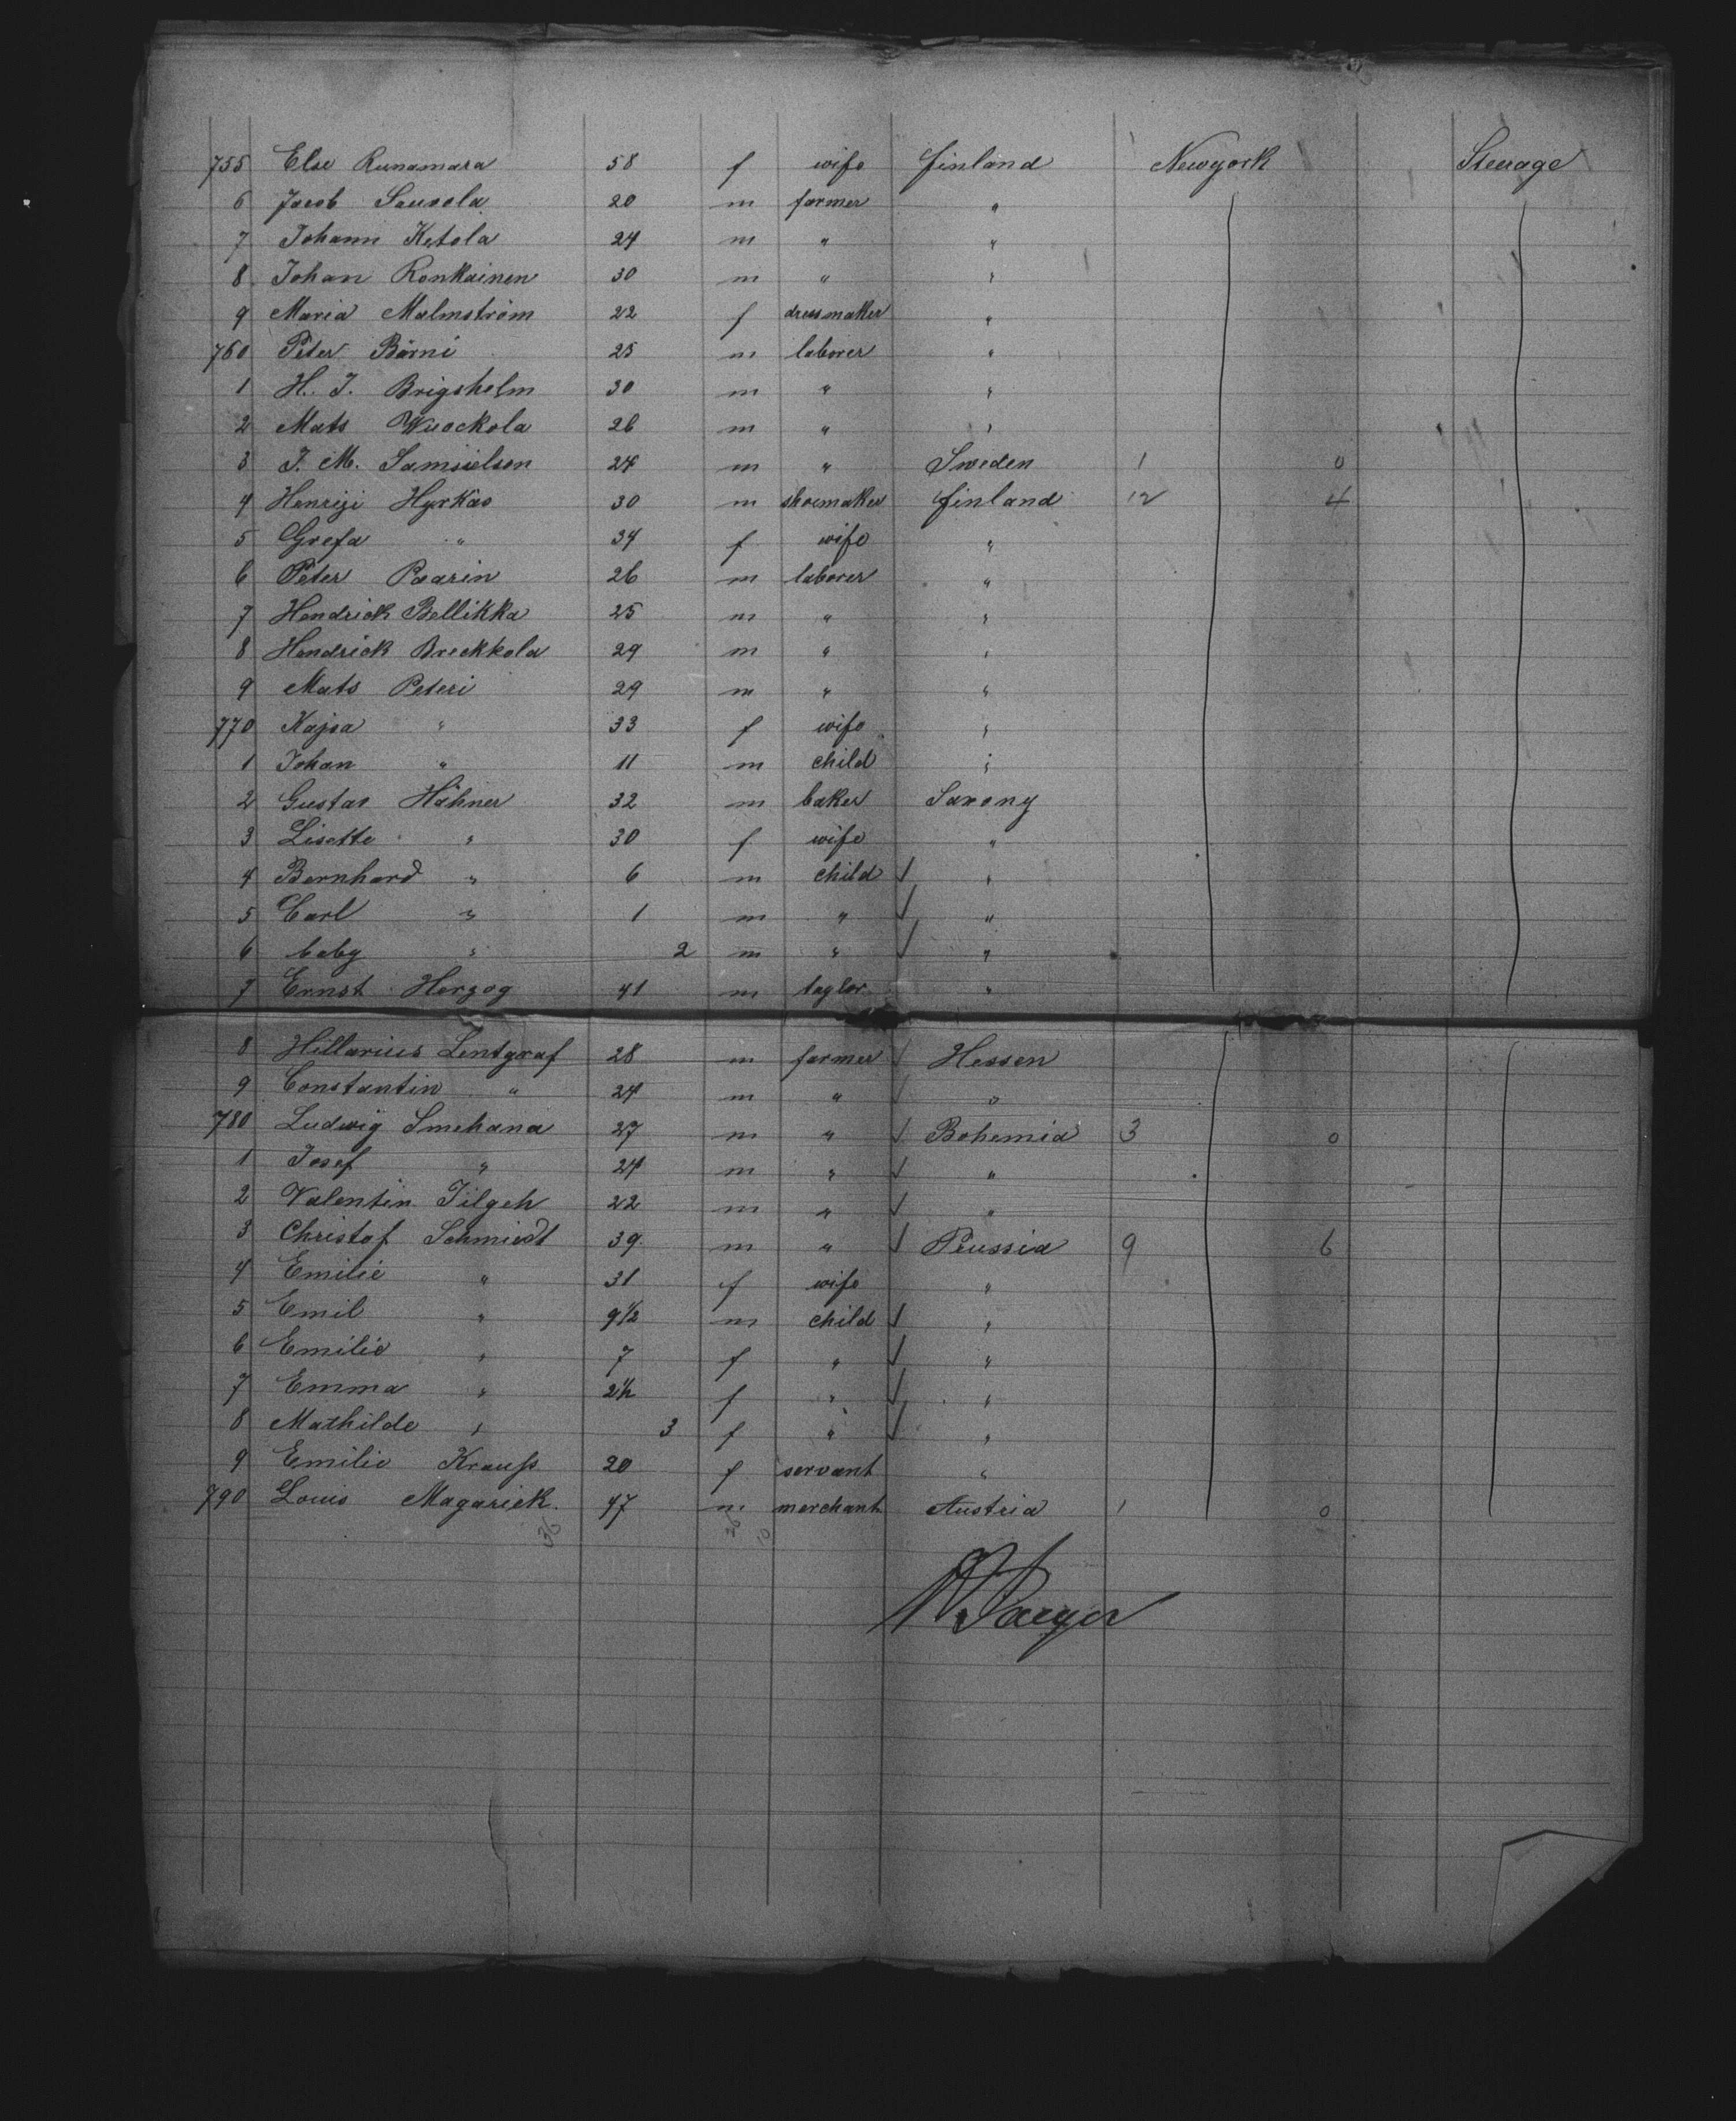 755 Else Runamara 58 f wife Finland Newyork Steerage
6 Jacob Sausola 20 m farmer "
7 Johann Ketola 24 m " "
8 Johan Ronkainen 30 m " "
9 Maria Malmström 22 f dressmaker "
760 Peter Börni 25 m laborer "
1 H. J. Brigshelm 30 m " "
2 Mats Wuockola 26 m " "
3 J. M. Samuelson 24 m " Sweden 1 0
4 Hyrkäs 30 m shoemaker Finland 12 4
5 Grefa " 34 f wife "
6 Peter Paarin 26 m laborer "
7 Hendrick Bellikka 25 m " "
8 Hendrick Breckkola 29 m " "
9 Mats Peteri 29 m " "
770 Kajsa " 33 f wife "
1 Johan " 11 m child "
2 Gustav Hähner 32 m baker Saxony
3 Lisette " 30 f wife "
4 Bernhard " 6 m child "
5 Carl " 1 m " "
6 baby " 2 m " "
7 Ernst Herzog 41 m taylor "
8 Hillarius Lentgraf 28 m farmer Hessen
9 Constantin " 24 m " "
780 Ludwig Smehana 27 m " Bohemia 3 0
1 Josef " 24 m " "
2 Valentin Jilgeh 22 m " "
3 Christof Schmiedt 39 m " Prussia 9 6
4 Emilie " 31 f wife "
5 Emil " 9 1/2 m child "
6 Emilie " 7 f " "
7 Emma " 2 1/2 f " "
8 Mathilde " 3 f " "
9 Emilie Krauß 20 f servant "
790 Louis Magarick 47 m merchant Austria 1 0
36 36 10